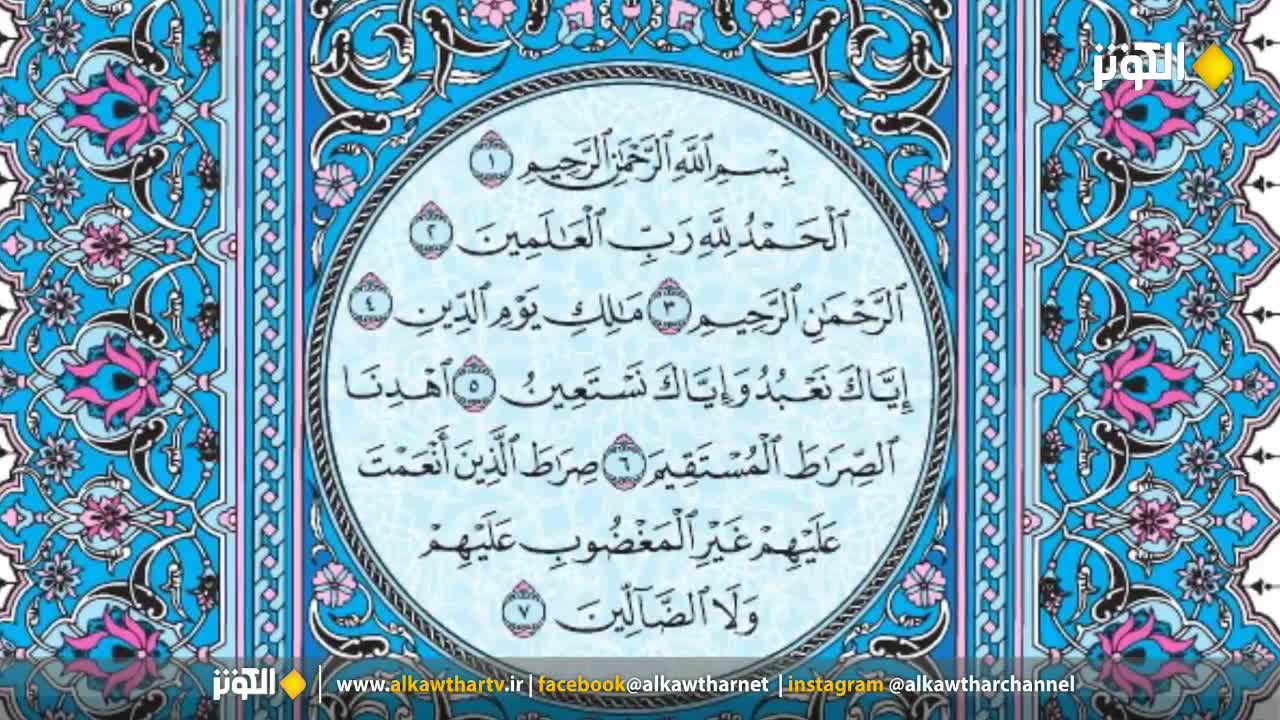 الكوثر
بِسْمِ ٱللَّهِ ٱلرَّحْمَٰنِ ٱلرَّحِيمِ ١
ٱلْحَمْدُ لِلَّهِ رَبِّ ٱلْعَٰلَمِينَ ٢
ٱلرَّحْمَٰنِ ٱلرَّحِيمِ ٣ مَٰلِكِ يَوْمِ ٱلدِّينِ ٤
إِيَّاكَ نَعْبُدُ وَإِيَّاكَ نَسْتَعِينُ ٥ ٱهْدِنَا
ٱلصِّرَٰطَ ٱلْمُسْتَقِيمَ ٦ صِرَٰطَ ٱلَّذِينَ أَنْعَمْتَ
عَلَيْهِمْ غَيْرِ ٱلْمَغْضُوبِ عَلَيْهِمْ
وَلَا ٱلضَّآلِّينَ ٧
الكوثر | www.alkawthartv.ir | facebook@alkawtharnet | instagram @alkawtharchannel